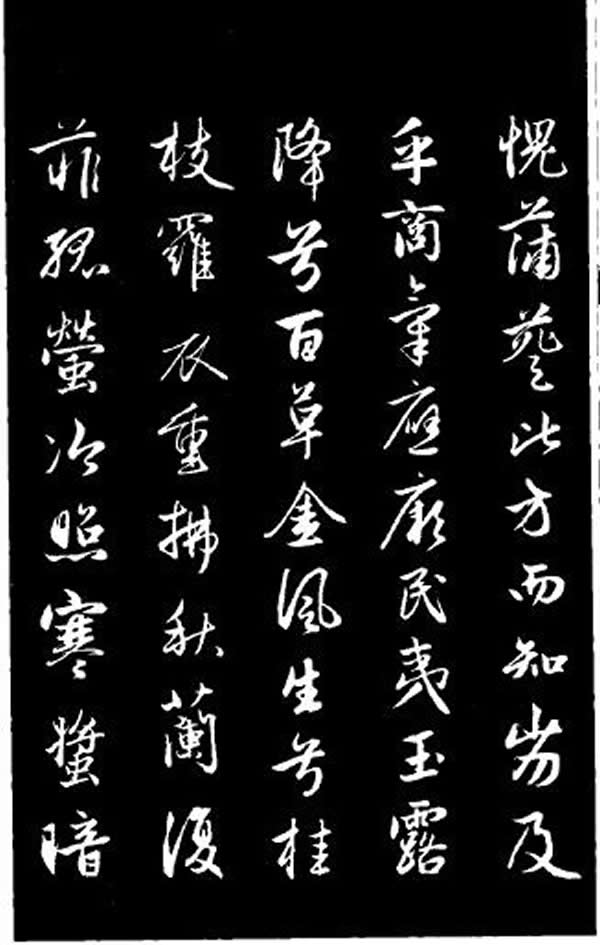 愧蒲葵比方而知劣及
乎商氣應厥民夷玉露
降兮百草金風生兮桂
枝羅衣重拂秋蘭復
菲孤螢冷照寒螿暗